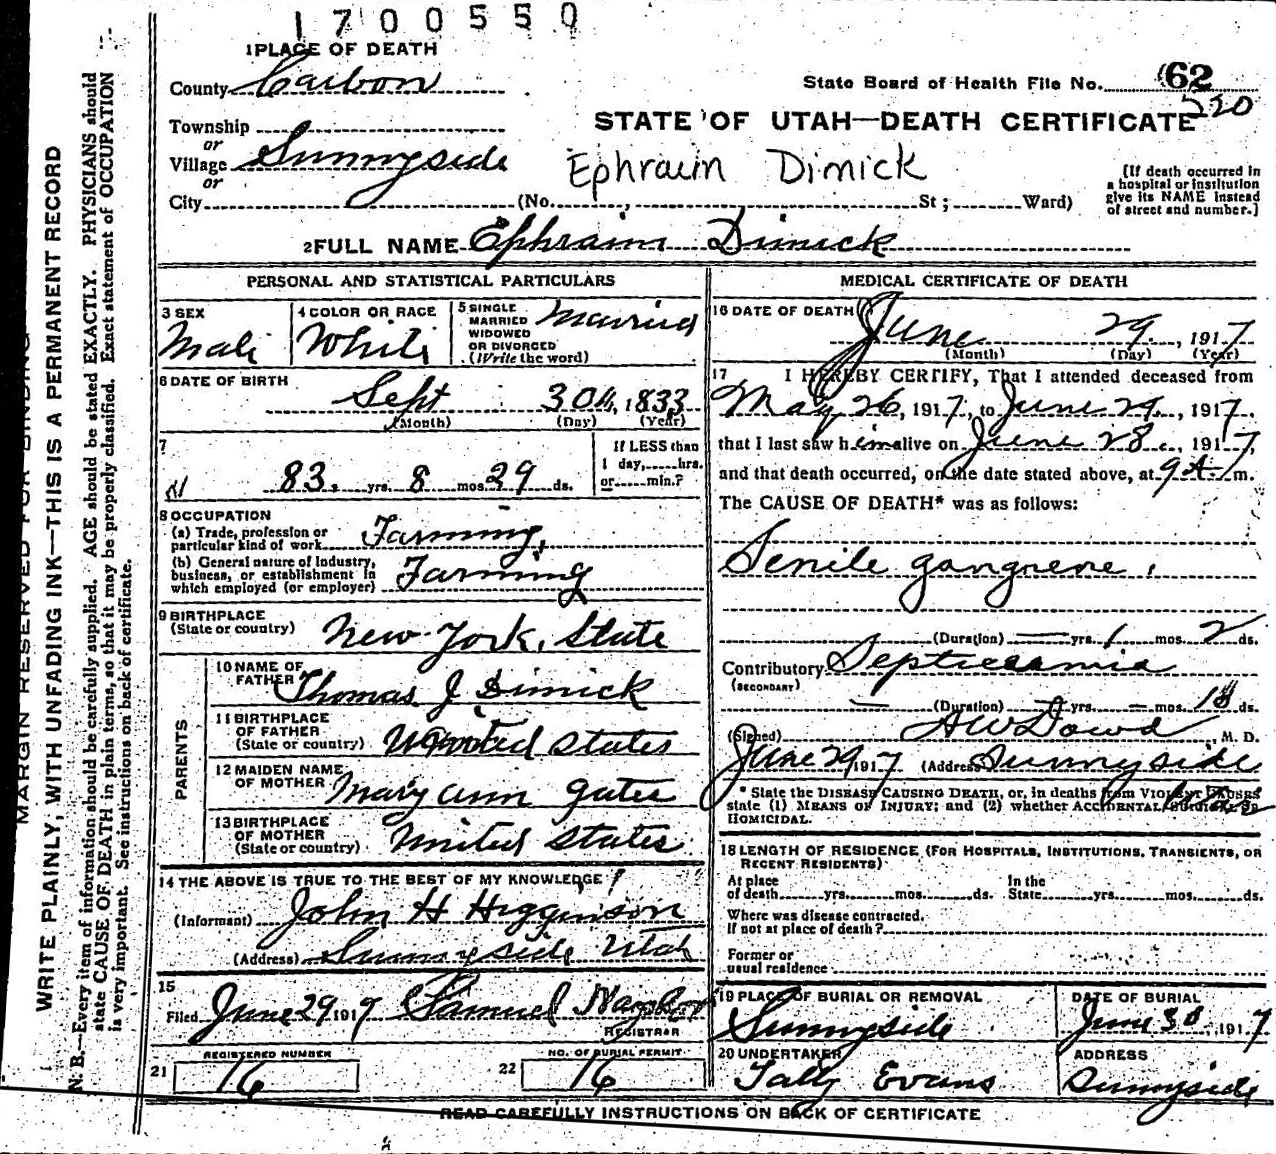 1700550
1 PLACE OF DEATH
County Carbon
State Board of Health File No. 62
520
Township
STATE OF UTAH—DEATH CERTIFICATE
or
Village Sunnyside
Ephraim Dimick
or
City (No. , St ; Ward)
[If death occurred in
a hospital or institution
give its NAME instead
of street and number.]
2 FULL NAME Ephraim Dimick
PERSONAL AND STATISTICAL PARTICULARS
3 SEX
Male
4 COLOR OR RACE
White
5 SINGLE
MARRIED
WIDOWED
OR DIVORCED
(Write the word)
Married
6 DATE OF BIRTH
Sept 30th, 1833
(Month) (Day) (Year)
7
83 yrs. 8 mos. 29 ds.
If LESS than
1 day, hrs.
or min.?
8 OCCUPATION
(a) Trade, profession or
particular kind of work Farming,
(b) General nature of industry,
business, or establishment in
which employed (or employer) Farming
9 BIRTHPLACE
(State or country) New York, State
PARENTS
10 NAME OF
FATHER Thomas J Dimick
11 BIRTHPLACE
OF FATHER
(State or country) United States
12 MAIDEN NAME
OF MOTHER Mary ann gates
13 BIRTHPLACE
OF MOTHER
(State or country) United States
14 THE ABOVE IS TRUE TO THE BEST OF MY KNOWLEDGE
(Informant) John H Higginson
(Address) Sunnyside Utah
15
Filed June 29 1917 Samuel Naylor
REGISTRAR
21 REGISTERED NUMBER
16
22 NO. OF BURIAL PERMIT
16
MEDICAL CERTIFICATE OF DEATH
16 DATE OF DEATH
June 29, 1917
(Month) (Day) (Year)
17 I HEREBY CERTIFY, That I attended deceased from
May 26, 1917, to June 29, 1917,
that I last saw him alive on June 28, 1917,
and that death occurred, on the date stated above, at 9 A. m.
The CAUSE OF DEATH* was as follows:
Senile gangrene,
(Duration) — yrs. 1 mos. 2 ds.
Contributory Septicaemia
(SECONDARY)
(Duration) — yrs. — mos. 18 ds.
(Signed) A W Dowd, M. D.
June 29 1917 (Address) Sunnyside
* State the DISEASE CAUSING DEATH, or, in deaths from VIOLENT CAUSES
state (1) MEANS OF INJURY; and (2) whether ACCIDENTAL, SUICIDAL OR
HOMICIDAL.
18 LENGTH OF RESIDENCE (FOR HOSPITALS, INSTITUTIONS, TRANSIENTS, OR
RECENT RESIDENTS)
At place
of death yrs. mos. ds.
In the
State yrs. mos. ds.
Where was disease contracted.
If not at place of death?
Former or
usual residence
19 PLACE OF BURIAL OR REMOVAL
Sunnyside
DATE OF BURIAL
June 30, 1917
20 UNDERTAKER
Tally Evans
ADDRESS
Sunnyside
READ CAREFULLY INSTRUCTIONS ON BACK OF CERTIFICATE
MARGIN RESERVED FOR BINDING
WRITE PLAINLY, WITH UNFADING INK—THIS IS A PERMANENT RECORD
N. B.—Every item of information should be carefully supplied. AGE should be stated EXACTLY. PHYSICIANS should
state CAUSE OF DEATH in plain terms, so that it may be properly classified. Exact statement of OCCUPATION
is very important. See instructions on back of certificate.